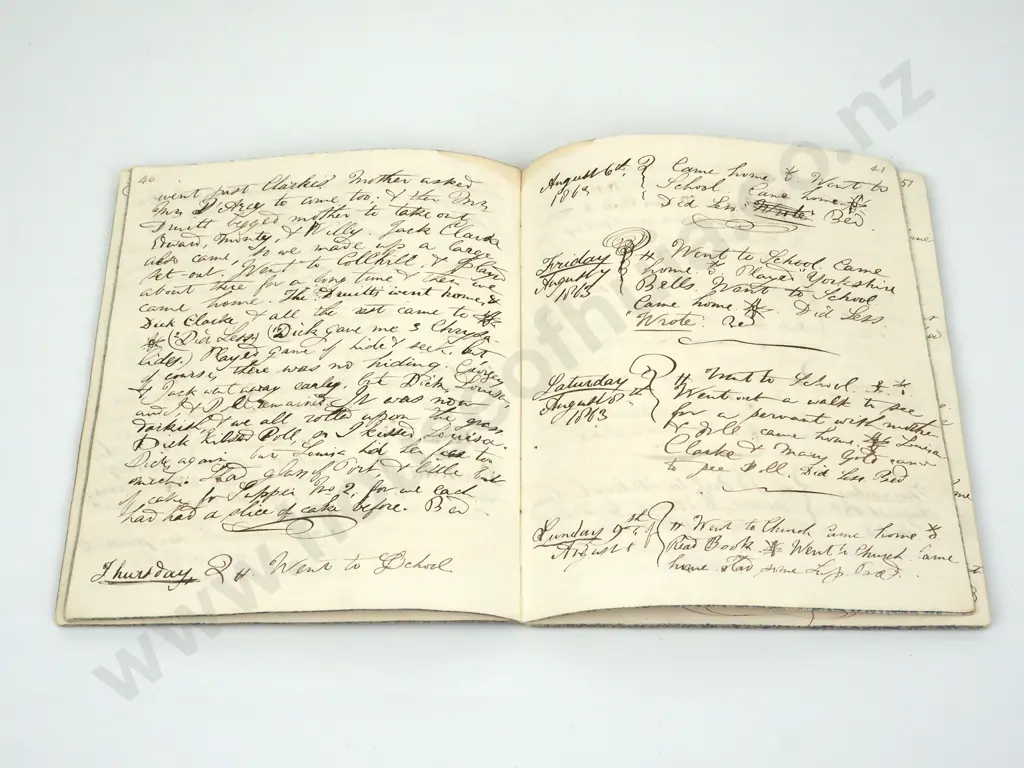 40
went past Clarkes' Mother asked
Mrs D'Arcy to come too. & then Mrs
Druitt begged mother to take out
Edward, Monty, & Willy. Jack Clarke
also came. So we made up a large
set out. Went to Collhill & played
about there for a long time & then we
came home. The Druitts went home, &
Dick Clarke & all the rest came to
(Did Less) (Dick gave me 3 Chrysa-
lides) Played game of hide & seek, but
of course, there was no hiding. Georgey
& Jack went away early, but Dick, Louisa,
and, I & Poll remained. It was now
darkish & we all rolled upon the grass
Dick kissed Poll, so I kissed Louisa.
Dick, again but Louisa had ten to
meet. Had glass of Port & little bit
of cake for Supper No 2, for we each
had had a slice of cake before. Bed
Thursday Went to School
41
August 6th 1863
Came home & Went to
School Came home
Did Less. Wrote Bed
Friday August 7 1863
Went to School Came
home & Played "Yorkshire
Bells. Went to School
Came home. Did Less.
"Wrote. Bed
Saturday August 8th 1863
Went to School.
Went out a walk to see
for a servant with mother
& Poll came home. Louisa
Clarke & Mary Goto came
to see Poll. Did Less Bed
Sunday 9th August
Went to Church Came home &
Read Book Went to Church Came
home Had some Supp Bed.
51
www.houseofhinuitsa.co.nz